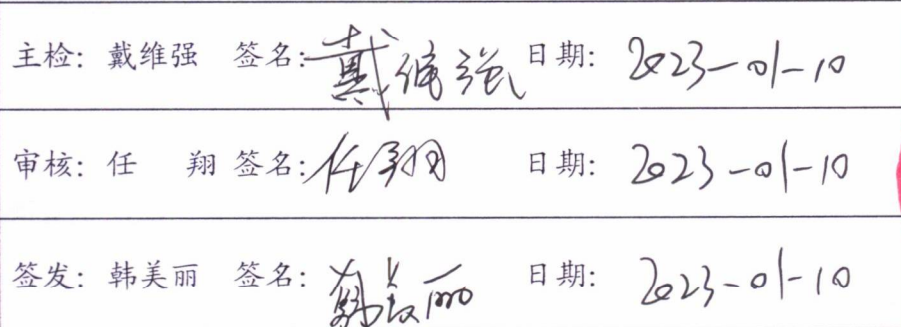 主检: 戴维强 签名: 戴维强 日期: 2023-01-10
审核: 任 翔 签名: 任翔 日期: 2023-01-10
签发: 韩美丽 签名: 韩美丽 日期: 2023-01-10